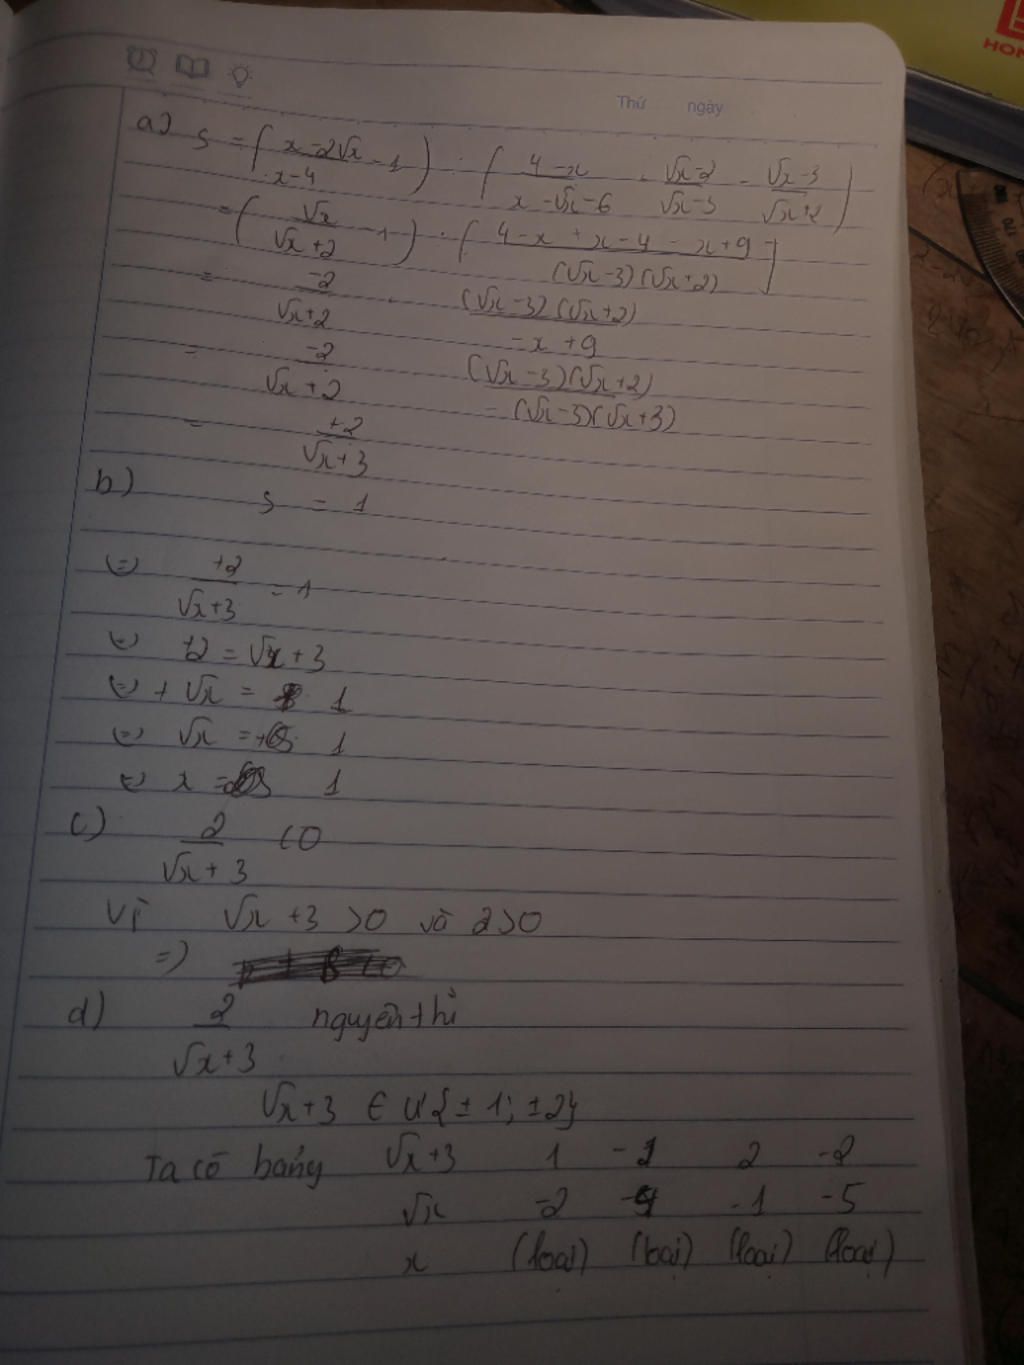 HON
Thứ ngày
a) S = ( (x - 2√x)/(x - 4) - 1 ) : ( (4 - x)/(x - √x - 6) + (√x - 2)/(√x - 3) - (√x - 3)/(√x + 2) )
= ( √x/(√x + 2) - 1 ) : ( (4 - x + x - 4 - x + 9)/((√x - 3)(√x + 2)) )
= -2/(√x + 2) . ((√x - 3)(√x + 2))/(-x + 9)
= -2/(√x + 2) ((√x - 3)(√x + 2))/(-(√x - 3)(√x + 3))
= +2/(√x + 3)
b) S = 1
(=) +2/(√x + 3) = 1
(=) +2 = √x + 3
(=) + √x = 1
(=) √x = 1
(=) x = 1
c) 2/(√x + 3) < 0
Vì √x + 3 > 0 và 2 > 0
=)
d) 2/(√x + 3) nguyên thì
√x + 3 ∈ Ư{± 1; ± 2}
Ta có bảng √x + 3 1 -1 2 -2
√x -2 -4 -1 -5
x (loại) (loại) (loại) (loại)